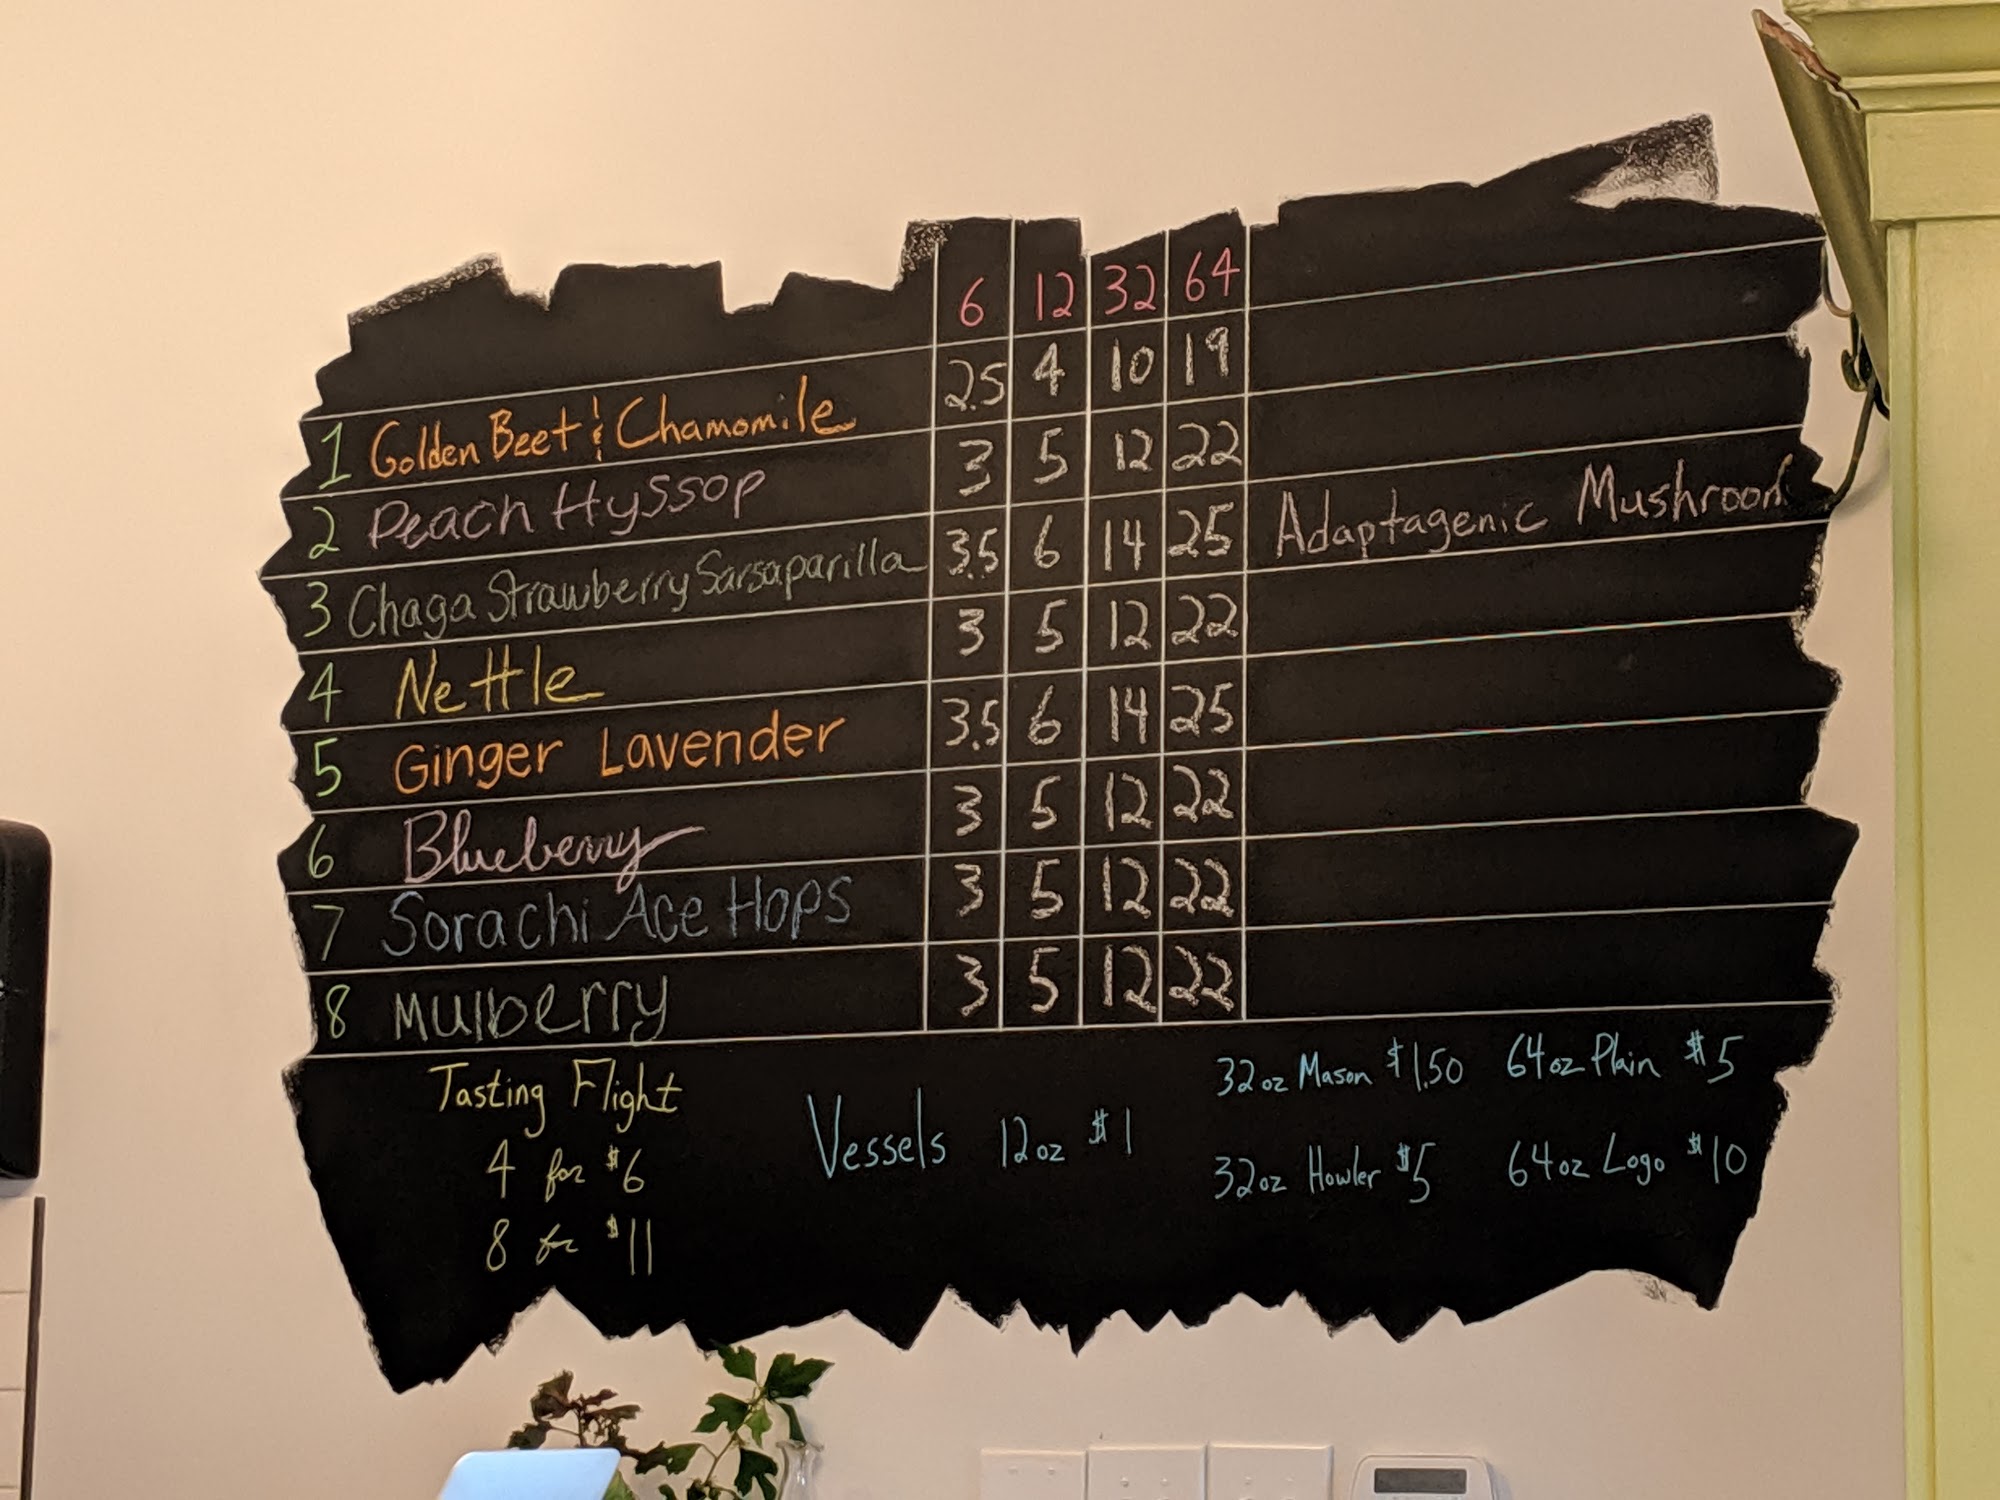 6 12 32 64
1 Golden Beet & Chamomile 2.5 4 10 19
2 Peach Hyssop 3 5 12 22
3 Chaga Strawberry Sarsaparilla 3.5 6 14 25 Adaptagenic Mushroom
4 Nettle 3 5 12 22
5 Ginger Lavender 3.5 6 14 25
6 Blueberry 3 5 12 22
7 Sorachi Ace Hops 3 5 12 22
8 Mulberry 3 5 12 22
Tasting Flight
4 for $6
8 for $11
Vessels 12oz $1
32oz Mason $1.50 64oz Plain $5
32oz Howler $5 64oz Logo $10